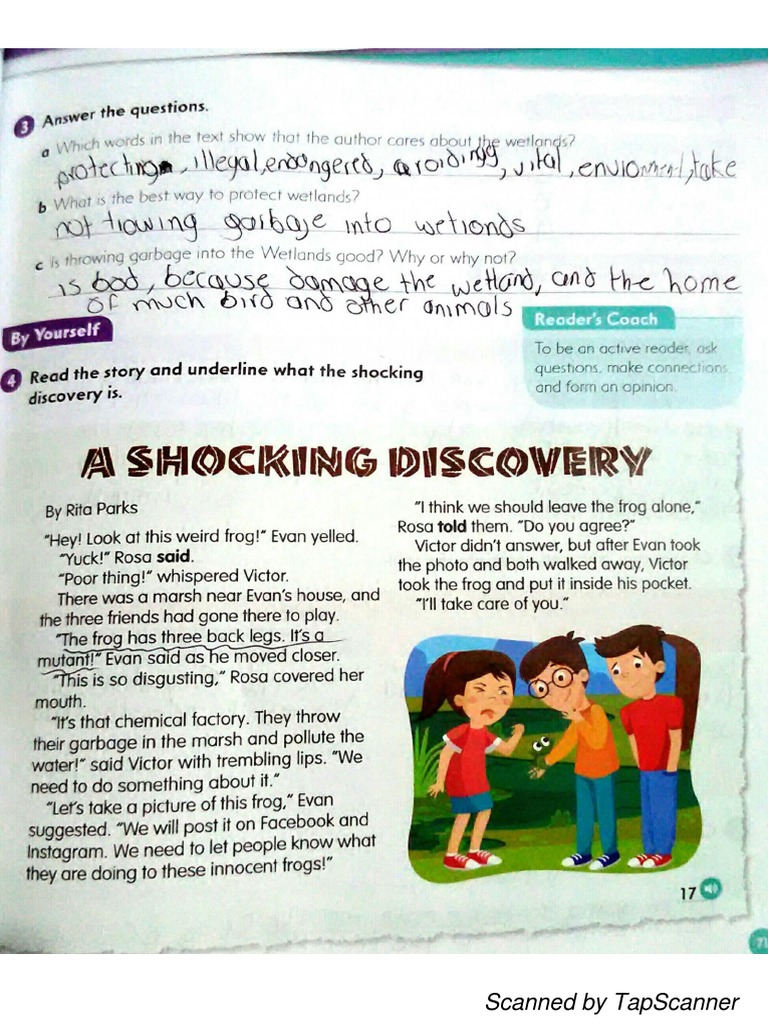 3 Answer the questions.
a Which words in the text show that the author cares about the wetlands?
protecting, illegal, endangered, avoiding, vital, envionment, take
b What is the best way to protect wetlands?
not trowing garbage into wetlonds
c Is throwing garbage into the Wetlands good? Why or why not?
is bad, because damage the wetland, and the home
of much bird and other animals
By Yourself
4 Read the story and underline what the shocking
discovery is.
Reader's Coach
To be an active reader, ask
questions, make connections,
and form an opinion.
A SHOCKING DISCOVERY
By Rita Parks
"Hey! Look at this weird frog!" Evan yelled.
"Yuck!" Rosa said.
"Poor thing!" whispered Victor.
There was a marsh near Evan's house, and
the three friends had gone there to play.
"The frog has three back legs. It's a
mutant!" Evan said as he moved closer.
"This is so disgusting," Rosa covered her
mouth.
"It's that chemical factory. They throw
their garbage in the marsh and pollute the
water!" said Victor with trembling lips. "We
need to do something about it."
"Let's take a picture of this frog," Evan
suggested. "We will post it on Facebook and
Instagram. We need to let people know what
they are doing to these innocent frogs!"
"I think we should leave the frog alone,"
Rosa told them. "Do you agree?"
Victor didn't answer, but after Evan took
the photo and both walked away, Victor
took the frog and put it inside his pocket.
"I'll take care of you."
17
71
Scanned by TapScanner